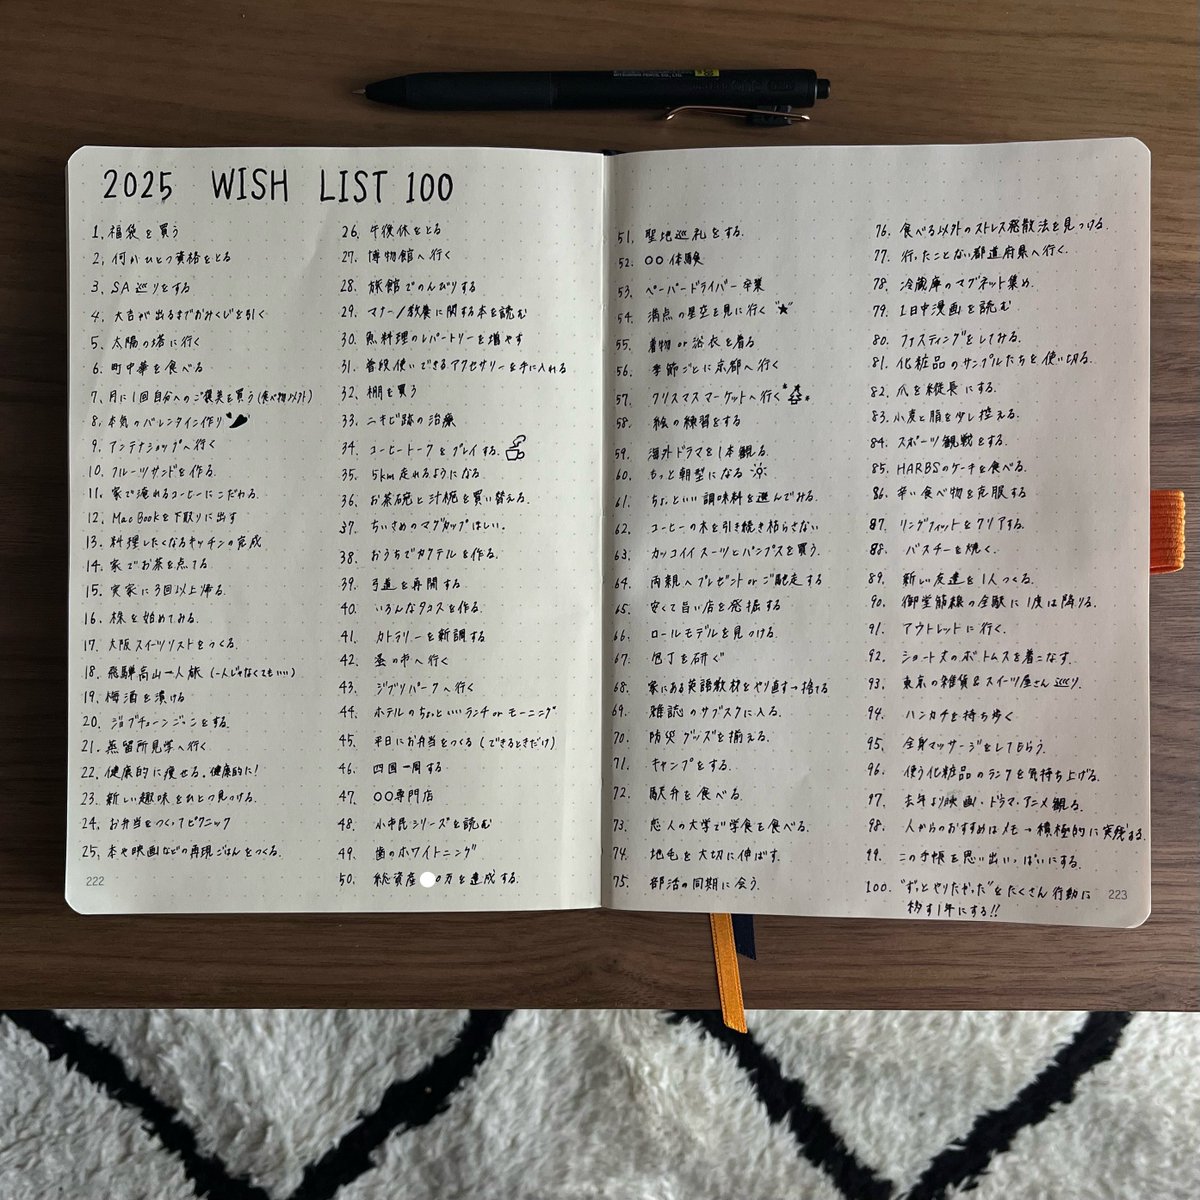 MITSUBISHI PENCIL CO., LTD.
2025 WISH LIST 100
1. 福袋を買う
2. 何かひとつ資格をとる
3. SA巡りをする
4. 大吉が出るまでおみくじを引く
5. 太陽の塔に行く
6. 町中華を食べる
7. 月に1回自分へのご褒美を買う(食べ物以外)
8. 本気のバレンタイン作り
9. アンテナショップへ行く
10. フルーツサンドを作る
11. 家で淹れるコーヒーにこだわる
12. MacBookを下取りに出す
13. 料理したくなるキッチンの完成
14. 家でお茶を点てる
15. 実家に3回以上帰る
16. 株を始めてみる
17. 大阪スイーツリストをつくる
18. 飛騨高山一人旅(一人じゃなくてもいい)
19. 梅酒を漬ける
20. ジョブチューンごっこをする
21. 蒸留所見学へ行く
22. 健康的に痩せる。健康的に!
23. 新しい趣味をひとつ見つける
24. お弁当をつくってピクニック
25. 本や映画などの再現ごはんをつくる
222
26. 午後休をとる
27. 博物館へ行く
28. 旅館でのんびりする
29. マナー/教養に関する本を読む
30. 魚料理のレパートリーを増やす
31. 普段使いできるアクセサリーを手に入れる
32. 棚を買う
33. ニキビ跡の治療
34. コーヒートークをプレイする
35. 5km走れるようになる
36. お茶碗と汁椀を買い替える
37. ちいさめのマグカップほしい。
38. おうちでカクテルを作る
39. 弓道を再開する
40. いろんなタコスを作る
41. カトラリーを新調する
42. 蚤の市へ行く
43. ジブリパークへ行く
44. ホテルのちょっといいランチorモーニング
45. 平日にお弁当をつくる(できるときだけ)
46. 四国一周する
47. ○○専門店
48. 小市民シリーズを読む
49. 歯のホワイトニング
50. 総資産 0万を達成する
51. 聖地巡礼をする
52. ○○体験
53. ペーパードライバー卒業
54. 満点の星空を見に行く
55. 着物or浴衣を着る
56. 季節ごとに京都へ行く
57. クリスマスマーケットへ行く
58. 絵の練習をする
59. 海外ドラマを1本観る
60. もっと朝型になる
61. ちょっといい調味料を選んでみる
62. コーヒーの木を引き続き枯らさない
63. カッコイイスーツとパンプスを買う
64. 両親へプレゼントorご馳走する
65. 安くて旨い店を発掘する
66. ロールモデルを見つける
67. 包丁を研ぐ
68. 家にある英語教材をやり直す→捨てる
69. 雑誌のサブスクに入る
70. 防災グッズを揃える
71. キャンプをする
72. 駅弁を食べる
73. 恋人の大学で学食を食べる
74. 地毛を大切に伸ばす
75. 部活の同期に会う
76. 食べる以外のストレス発散法を見つける
77. 行ったことない都道府県へ行く
78. 冷蔵庫のマグネット集め
79. 1日中漫画を読む
80. ファスティングをしてみる
81. 化粧品のサンプルたちを使い切る
82. 爪を縦長にする
83. 小麦と脂を少し控える
84. スポーツ観戦をする
85. HARBSのケーキを食べる
86. 辛い食べ物を克服する
87. リングフィットをクリアする
88. バスチーを焼く
89. 新しい友達を1人つくる
90. 御堂筋線の全駅に1度は降りる
91. アウトレットに行く
92. ショート丈のボトムスを着こなす
93. 東京の雑貨&スイーツ屋さん巡り
94. ハンカチを持ち歩く
95. 全身マッサージをしてもらう
96. 使う化粧品のランクを気持ち上げる
97. 去年より映画・ドラマ・アニメ観る
98. 人からのおすすめはメモ→積極的に実践する
99. この手帳を思い出いっぱいにする
100. "ずっとやりたかった"をたくさん行動に
移す1年にする!!
223